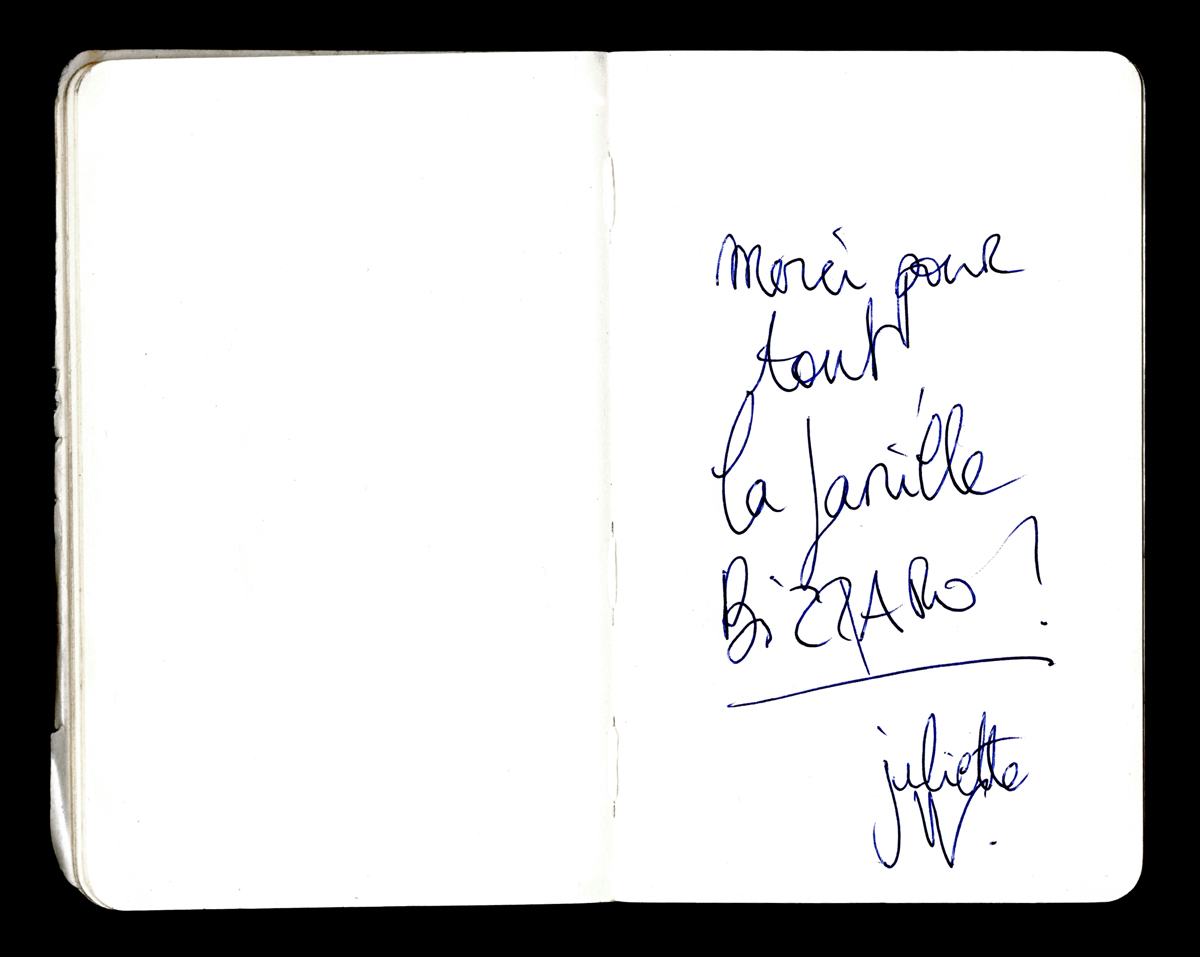 Merci pour
tout
la famille
BiZZARO !
juliette
W.